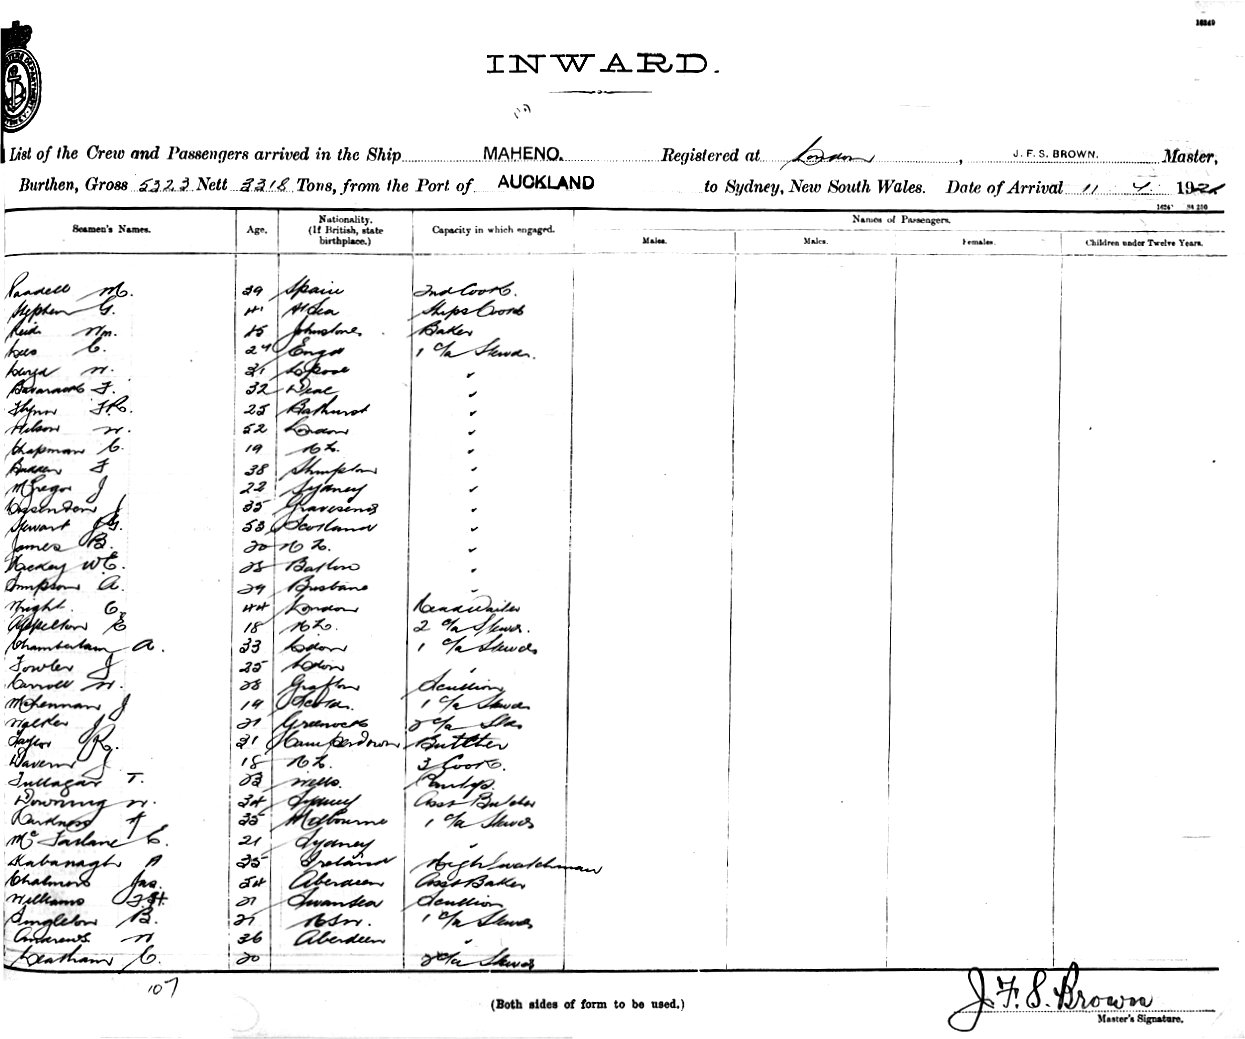 16249
INWARD.
List of the Crew and Passengers arrived in the Ship MAHENO. Registered at London, J. F. S. BROWN. Master,
Burthen, Gross 5323 Nett 3318 Tons, from the Port of AUCKLAND to Sydney, New South Wales. Date of Arrival 11 4 192
Seamen's Names. Age. Nationality. (If British, state birthplace.) Capacity in which engaged. Names of Passengers.
Males. Males. Females. Children under Twelve Years.
M. 29 Spain 2nd Cook.
Stephen G. 41 At Sea Ships Cook
Reid Wm. 45 Johnstone Baker
Lees C. 27 Engd 1 c/a Steward.
Lloyd W. 31 Lpool "
F. 32 Deal "
Flynn F.R. 25 Bathurst "
Wilson W. 52 London "
Chapman C. 19 N Z. "
F 38 "
McGregor J 22 Sydney "
J 35 Gravesend "
Stewart J.G. 53 Scotland "
James B. 20 N Z. "
Mackey W.E. "
Simpson A. 29 Brisbane "
Wright C. 44 London Headwaiter
Appelton E 18 N Z. 2 c/a Stewd.
Chamberlain A. 33 London 1 c/a Steward
Fowler J 25 London "
Carroll W. 28 Grafton Scullion
McLennan J 19 Scotd. 1 c/a Steward
Walker J 21 Greenock 2 c/a Std
Taylor R. 31 Camperdown Butcher
Davern J 18 N Z. 3 Cook.
Fullagar T. 23 Wells. Pantry.
Downing W. 34 Sydney Asst Butcher
Harkness A 35 Melbourne 1 c/a Steward
McFarlane C. 21 Sydney "
Kabanagh P 35 Ireland Nightwatchman
Chalmers Jas. 54 Aberdeen Asst Baker
Williams F.H. 21 Swansea Scullion
Singleton B. 21 NSW. 1 c/a Steward
Andrews W 36 Aberdeen "
Leatham C. 20 2 c/a Steward
107
(Both sides of form to be used.)
J. F. S. Brown
Master's Signature.